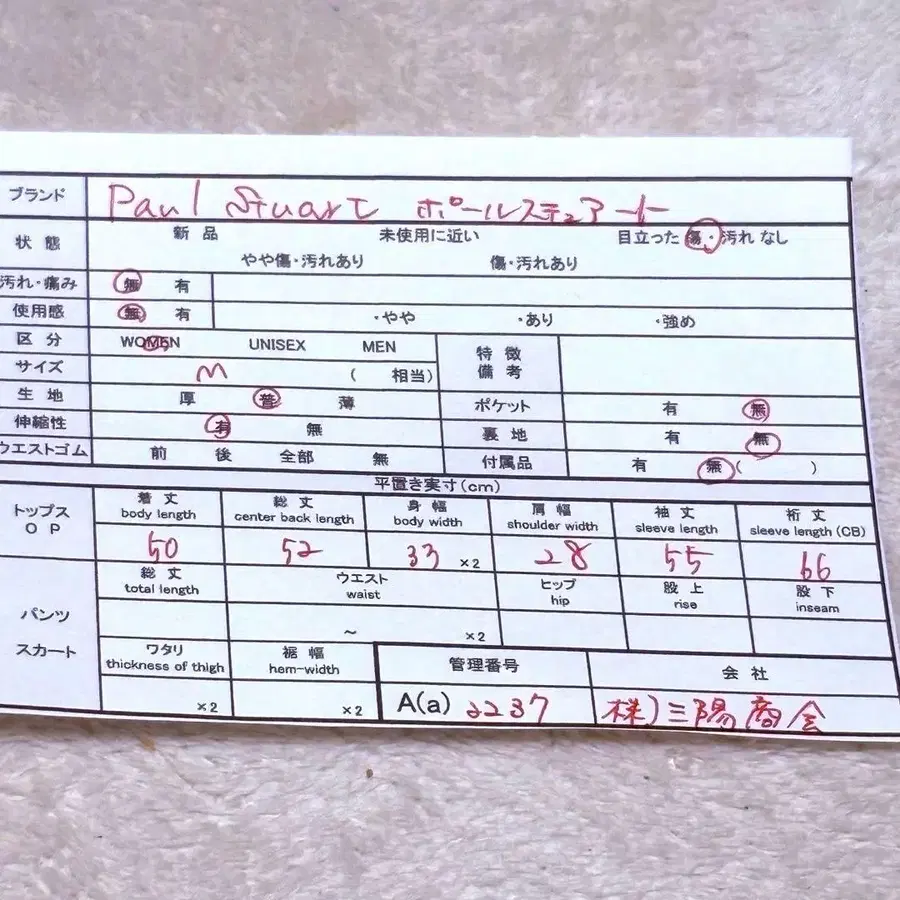 ブランド Paul Stuart ポールステュアート
状態 新品 未使用に近い 目立った傷・汚れなし
やや傷・汚れあり 傷・汚れあり
汚れ・痛み 無 有
使用感 無 有 ・やや ・あり ・強め
区分 WOMEN UNISEX MEN 特徴
サイズ M ( 相当) 備考
生地 厚 普 薄 ポケット 有 無
伸縮性 有 無 裏地 有 無
ウエストゴム 前 後 全部 無 付属品 有 無 ( )
平置き実寸(cm)
トップス 着丈 総丈 身幅 肩幅 袖丈 裄丈
OP body length center back length body width shoulder width sleeve length sleeve length (CB)
50 52 33 ×2 28 55 66
総丈 ウエスト ヒップ 股上 股下
total length waist hip rise inseam
パンツ ~ ×2
スカート ワタリ 裾幅 管理番号 会社
thickness of thigh hem-width
×2 ×2 A(a) 2237 株)三陽商会